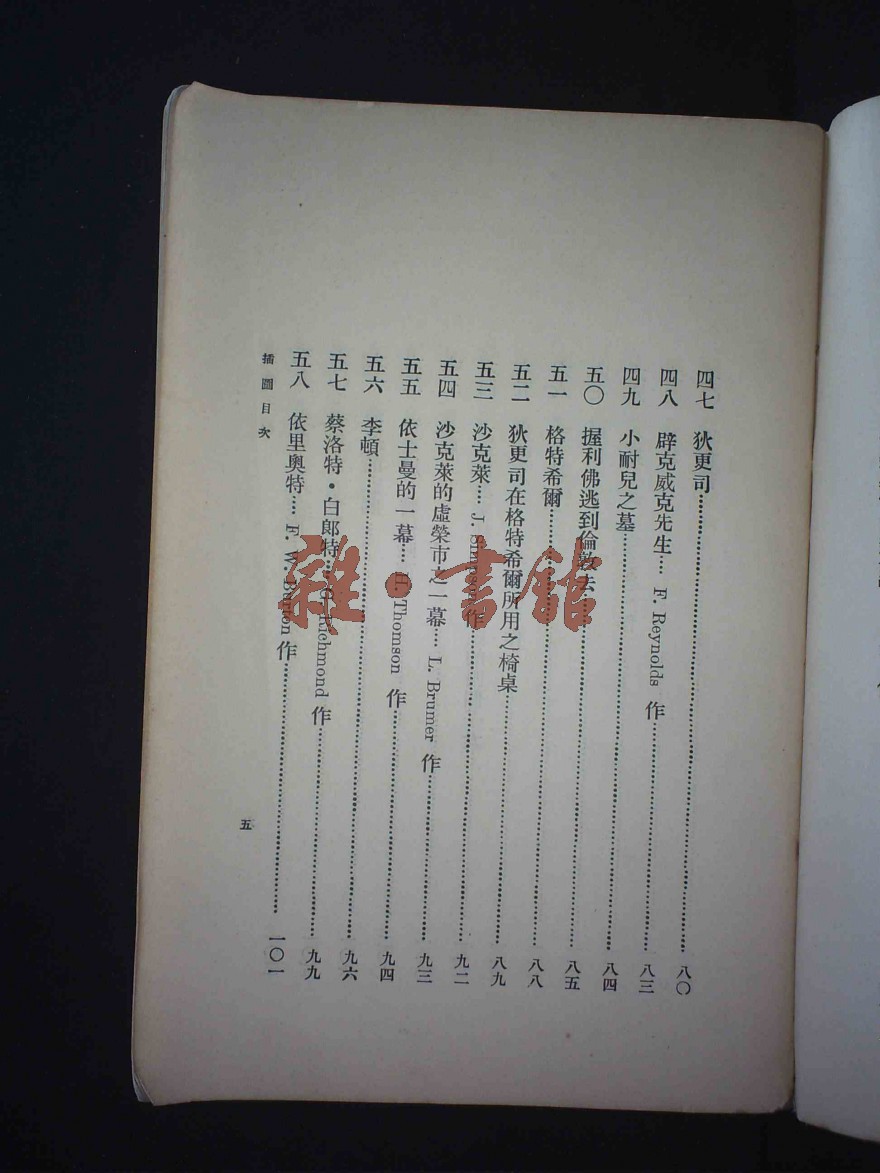 四七 狄更司……八〇
四八 辟克威克先生… F. Reynolds 作……八三
四九 小耐兒之墓……八四
五〇 握利佛逃到倫敦去……八五
五一 格特希爾……八八
五二 狄更司在格特希爾所用之椅桌……八九
五三 沙克萊… J. 作……九二
五四 沙克萊的虛榮市之一幕… L. Brumer 作……九三
五五 依士曼的一幕… H. Thomson 作……九四
五六 李頓……九六
五七 蔡洛特·白郎特… G. Richmond 作……九九
五八 依里奧特… F. W. Burton 作……一〇一
插圖目次
五
雜·書館